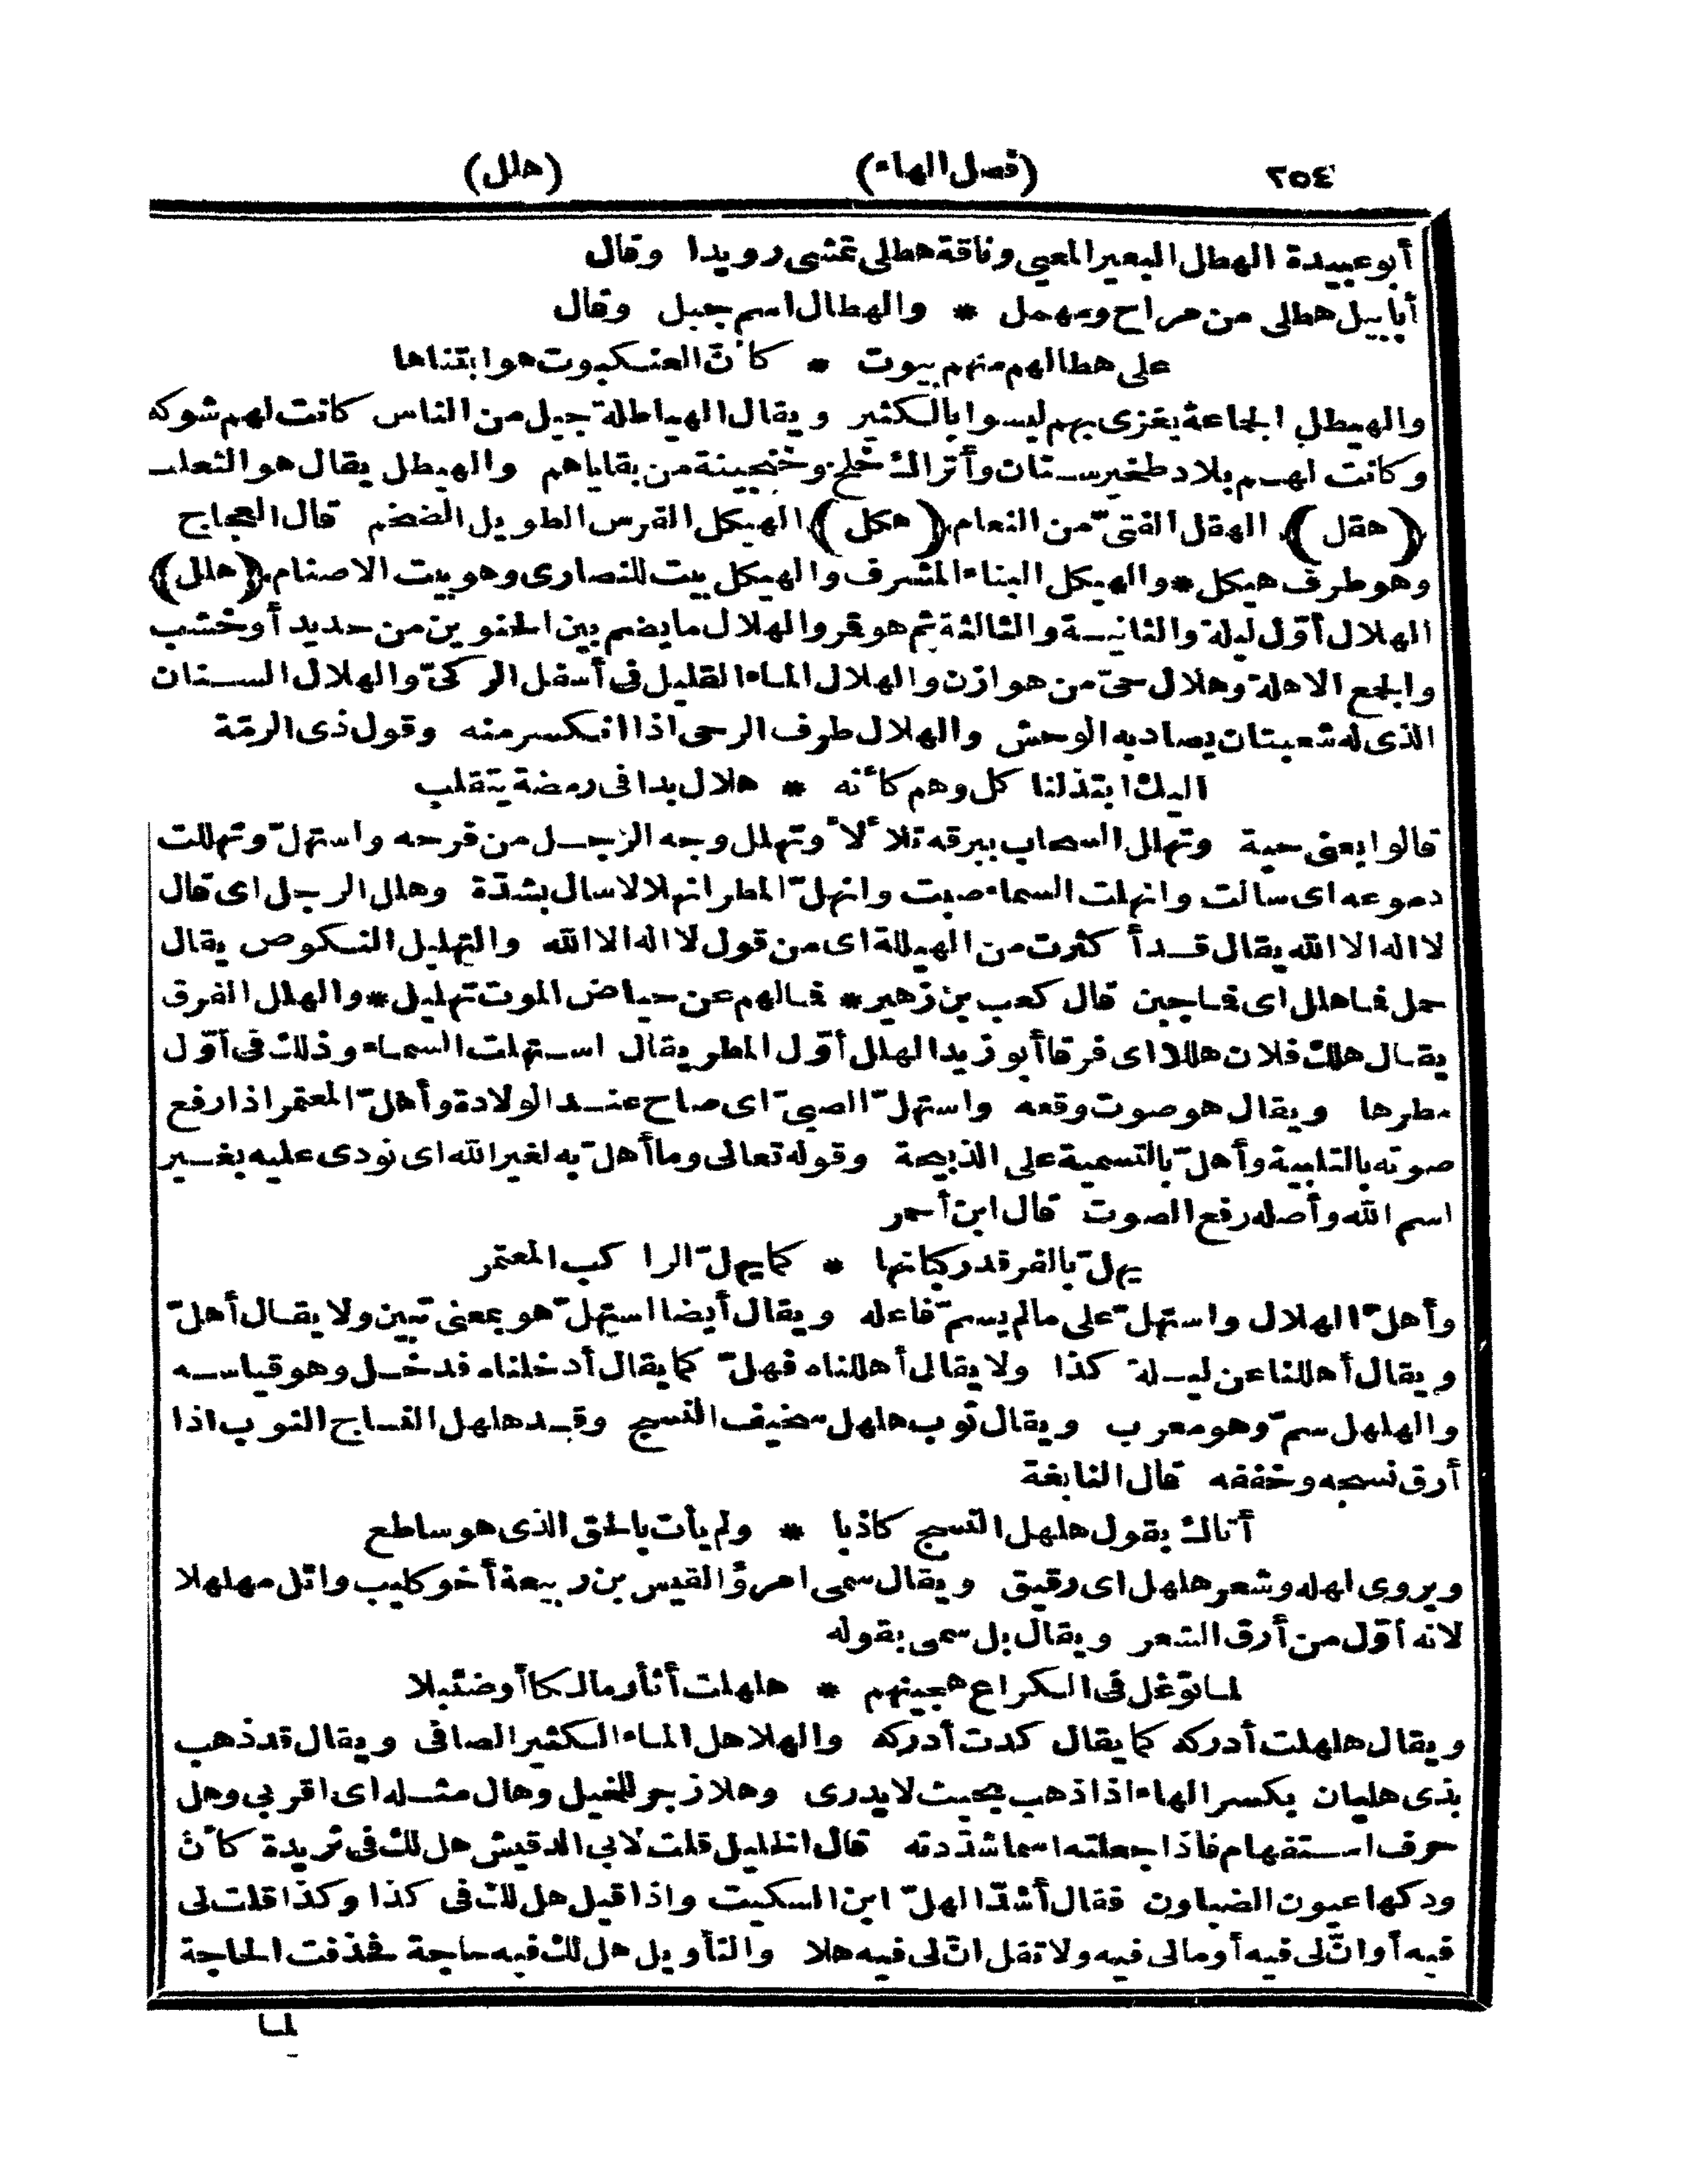 ٢٥٤ (فصل الهاء) (هلل)
أبو عبيدة الهطال البعير المعيي وناقة هطلى تمشى رويدا وقال
أبابيل هطلى من مراح ومهمل * والهطال اسم جبل وقال
على هطالهم منهم بيوت * كأنّ العنكبوت هو ابتناها
والهيطل الجماعة يغزى بهم ليسوا بالكثير ويقال الهياطلة جيل من الناس كانت لهم شوكة
وكانت لهم بلاد طخيرستان وأتراك خلج وخنجينة من بقاياهم والهيطل يقال هو الثعلب
(هقل) الهقل الفتىّ من النعام (هكل) الهيكل الفرس الطويل الضخم قال العجاج
وهو طرف هيكل * والهيكل البناء المشرف والهيكل بيت للنصارى وهو بيت الاصنام (هلل)
الهلال أوّل ليلة والثانيـة والثالثة ثم هو قمر والهلال ما يضم بين الحنوين من حديد أو خشب
والجمع الاهلة وهلال حىّ من هوازن والهلال الماء القليل فى أسفل الركىّ والهلال السـنان
الذى له شعبتان يصاد به الوحش والهلال طرف الرحى اذا انكسر منه وقول ذى الرمّة
اليك ابتذلنا كل وهم كأنه * هلال بدا فى رمضة يتقلب
قالوا يعنى حية وتهلل السحاب ببرقه تلألأ وتهلل وجه الرجـل من فرحه واستهلّ وتهللت
دموعه اى سالت وانهلت السماء صبت وانهلّ المطر انهلالا سال بشدّة وهلل الرجل اى قال
لا اله الا الله يقال قـد أكثرت من الهيللة اى من قول لا اله الا الله والتهليل النكوص يقال
حمل فما هلل اى فما جبن قال كعب بن زهير * فما لهم عن حياض الموت تهليل * والهلل الفرق
يقال هلك فلان هللا اى فرقا أبو زيد الهلل أوّل المطر يقال اسـتهلت السماء وذلك فى أوّل
مطرها ويقال هو صوت وقعه واستهلّ الصبىّ اى صاح عنـد الولادة وأهلّ المعتمر اذا رفع
صوته بالتلبية وأهلّ بالتسمية على الذبيحة وقوله تعالى وما أهلّ به لغير الله اى نودى عليه بغـير
اسم الله وأصله رفع الصوت قال ابن أحمر
يهلّ بالفرقد ركبانها * كما يهلّ الراكب المعتمر
وأهلّ الهلال واستهلّ على ما لم يسمّ فاعله ويقال أيضا استهلّ هو بمعنى تبين ولا يقال أهلّ
ويقال أهللنا عن ليـلة كذا ولا يقال أهللناه فهلّ كما يقال أدخلناه فدخـل وهو قياسـه
والهلهل سمّ وهو معرب ويقال ثوب هلهل سخيف النسج وقـد هلهل النساج الثوب اذا
أرق نسجه وخففه قال النابغة
أتاك بقول هلهل النسج كاذبا * ولم يأت بالحق الذى هو ساطع
ويروى لهله وشعر هلهل اى رقيق ويقال سمى امرؤ القيس بن ربيعة أخو كليب وائل مهلهلا
لانه أوّل من أرق الشعر ويقال بل سمى بقوله
لما توغل فى الكراع هجينهم * هلهلت أثأر مالكا أو ضئبلا
ويقال هلهلت أدركه كما يقال كدت أدركه والهلاهل الماء الكثير الصافى ويقال قد ذهب
بذى هليان بكسر الهاء اذا ذهب بحيث لا يدرى وهلا زجر للخيل وهال مثـله اى اقربى وهل
حرف اسـتفهام فاذا جعلته اسما شدّدته قال الخليل قلت لابى الدقيش هل لك فى ثريدة كأنّ
ودكها عيون الضياون فقال أشدّ الهلّ ابن السكيت واذا قيل هل لك فى كذا وكذا قلت لى
فيه أو انّ لى فيه أو مالى فيه ولا تقل انّ لى فيه هلا والتأويل هل لك فيه حاجة فحذفت الحاجة
لما